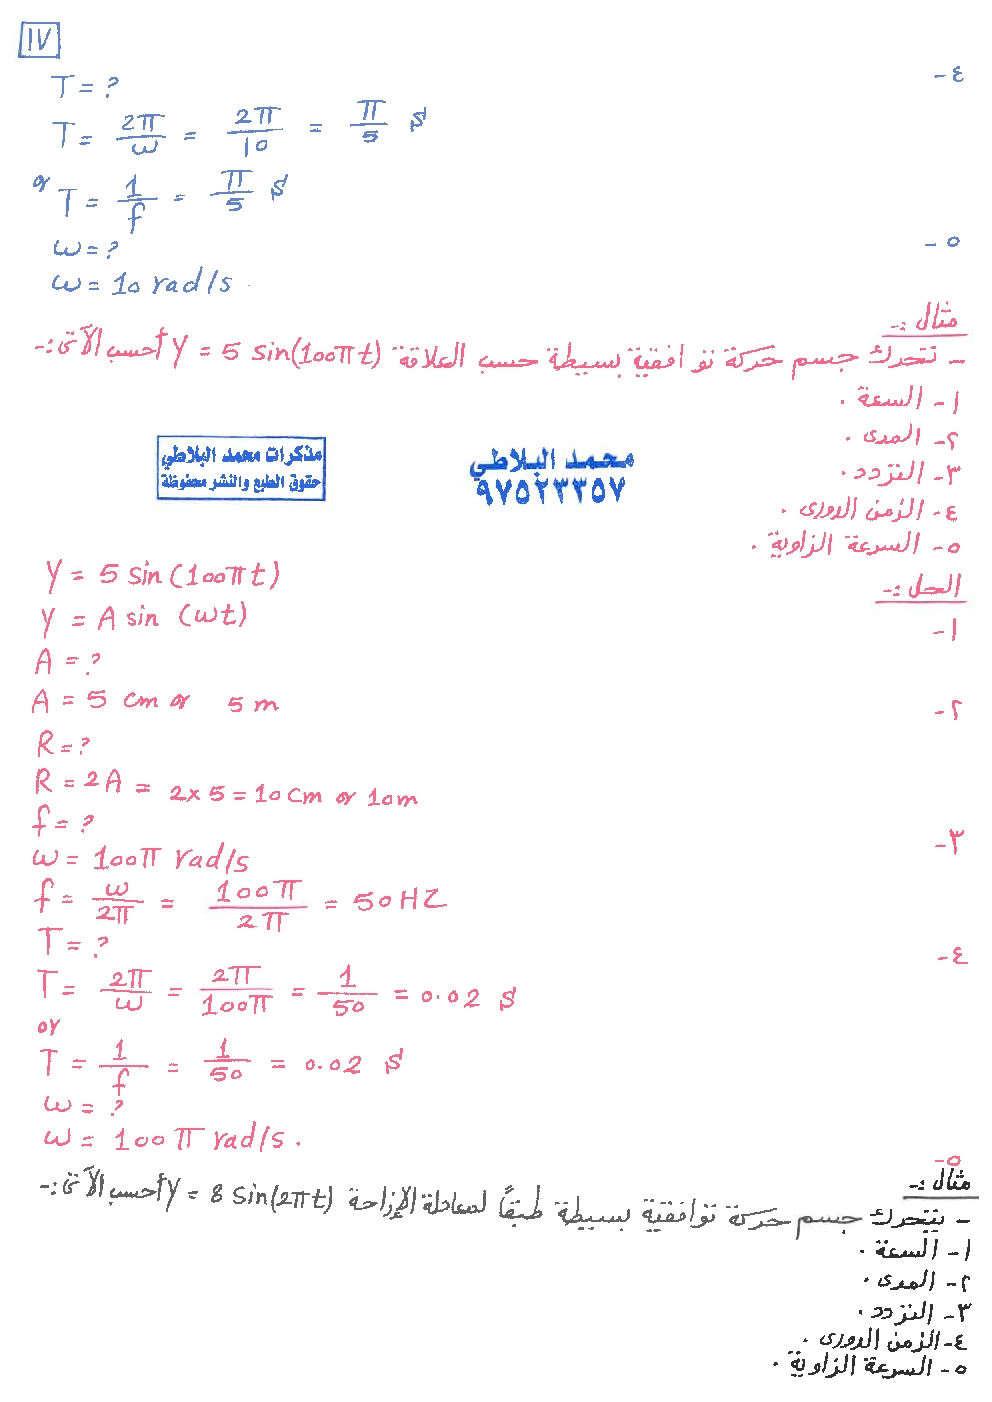 ١٧
٤-
T = ?
T = 2π/ω = 2π/10 = π/5 s
or T = 1/f = π/5 s
٥-
ω = ?
ω = 10 rad/s
مثال :-
- تتحرك جسم حركة توافقية بسيطة حسب العلاقة Y = 5 sin(100πt) أحسب الآتى :-
١- السعة .
٢- المدى .
٣- التردد .
٤- الزمن الدورى .
٥- السرعة الزاوية .
مذكرات محمد البلاطي
حقوق الطبع والنشر محفوظة
محمد البلاطي
٩٧٥٢٣٣٥٧
الحل :-
Y = 5 sin(100πt)
Y = A sin (ωt)
١-
A = ?
A = 5 cm or 5 m
٢-
R = ?
R = 2A = 2x5 = 10 cm or 10m
٣-
f = ?
ω = 100π rad/s
f = ω/2π = 100π/2π = 50 HZ
٤-
T = ?
T = 2π/ω = 2π/100π = 1/50 = 0.02 s
or
T = 1/f = 1/50 = 0.02 s
ω = ?
ω = 100π rad/s.
٥-
مثال :-
- يتحرك جسم حركة توافقية بسيطة طبقاً لمعادلة الإزاحة Y = 8 sin(2πt) أحسب الآتى :-
١- السعة .
٢- المدى .
٣- التردد .
٤- الزمن الدورى .
٥- السرعة الزاوية .